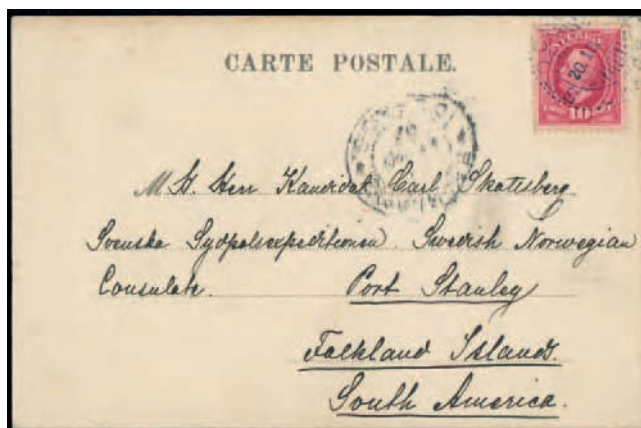 CARTE POSTALE.
10
20.11
M. H. Herr Kandidat Carl Skottsberg
Svenska Sydpolsexpeditionen. Swedish Norwegian
Consulate. Port Stanley
Falkland Islands.
South America.